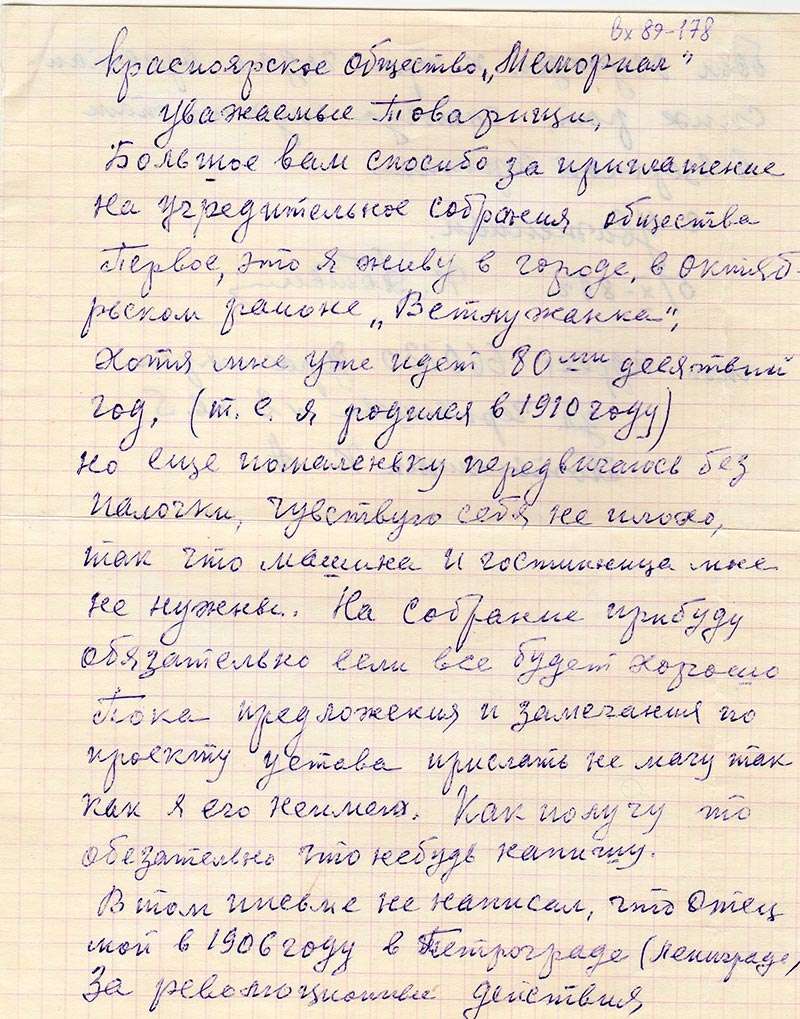 вх 89-178
Красноярское общество „Мемориал"
уважаемые Товарищи,
Большое вам спосибо за приглашение
на учредительное собрания общества
Первое, это я живу в городе, в октяб-
рьском районе „Ветлужанка",
Хотя мне уже идет 80тый десятый
год, (т. е. я родился в 1910 году)
но еще помаленьку передвигаюсь без
палочки, чувствую себя не плохо,
так что машина и гостиница мне
не нужны. На собрание прибуду
обязательно если все будет хорошо
Пока предложения и замечания по
проекту устава прислать не магу так
как я его неимею. Как получу то
обезательно что небудь напишу.
В том письме не написал, что Отец
мой в 1906 году в Петрограде (Ленинграде,
За революционные действия,